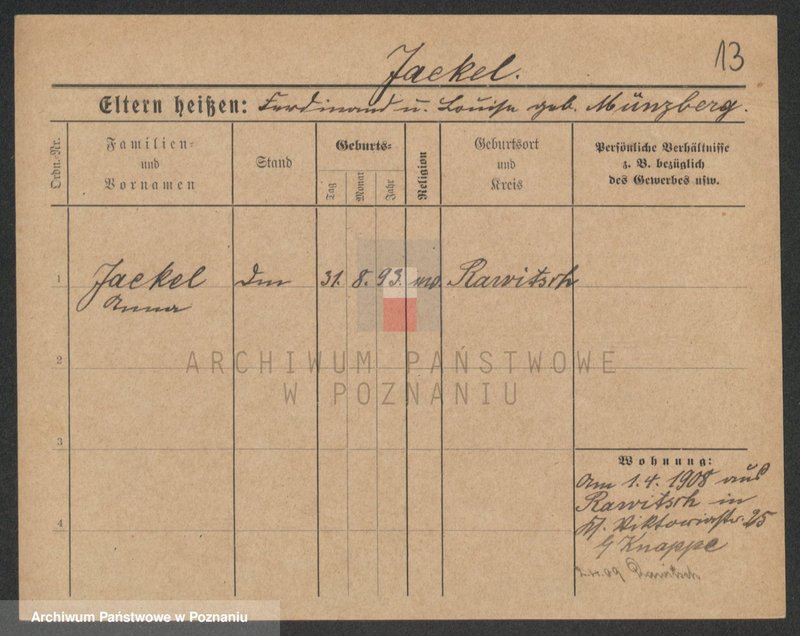 13
Jaekel.
Eltern heißen: Ferdinand u. Louise geb. Münzberg.
Ordn.-Nr.
Familien- und Vornamen
Stand
Geburts-
Tag
Monat
Jahr
Religion
Geburtsort und Kreis
Persönliche Verhältnisse z. B. bezüglich des Gewerbes usw.
1
Jaekel
Anna
31. 8. 93.
Rawitsch
2
3
4
Wohnung:
Am 1.4. 1908 aus
Rawitsch in
Viktoriastr. 25
Knappe
2.4.09 Rawitsch
ARCHIWUM PAŃSTWOWE
W POZNANIU
Archiwum Państwowe w Poznaniu